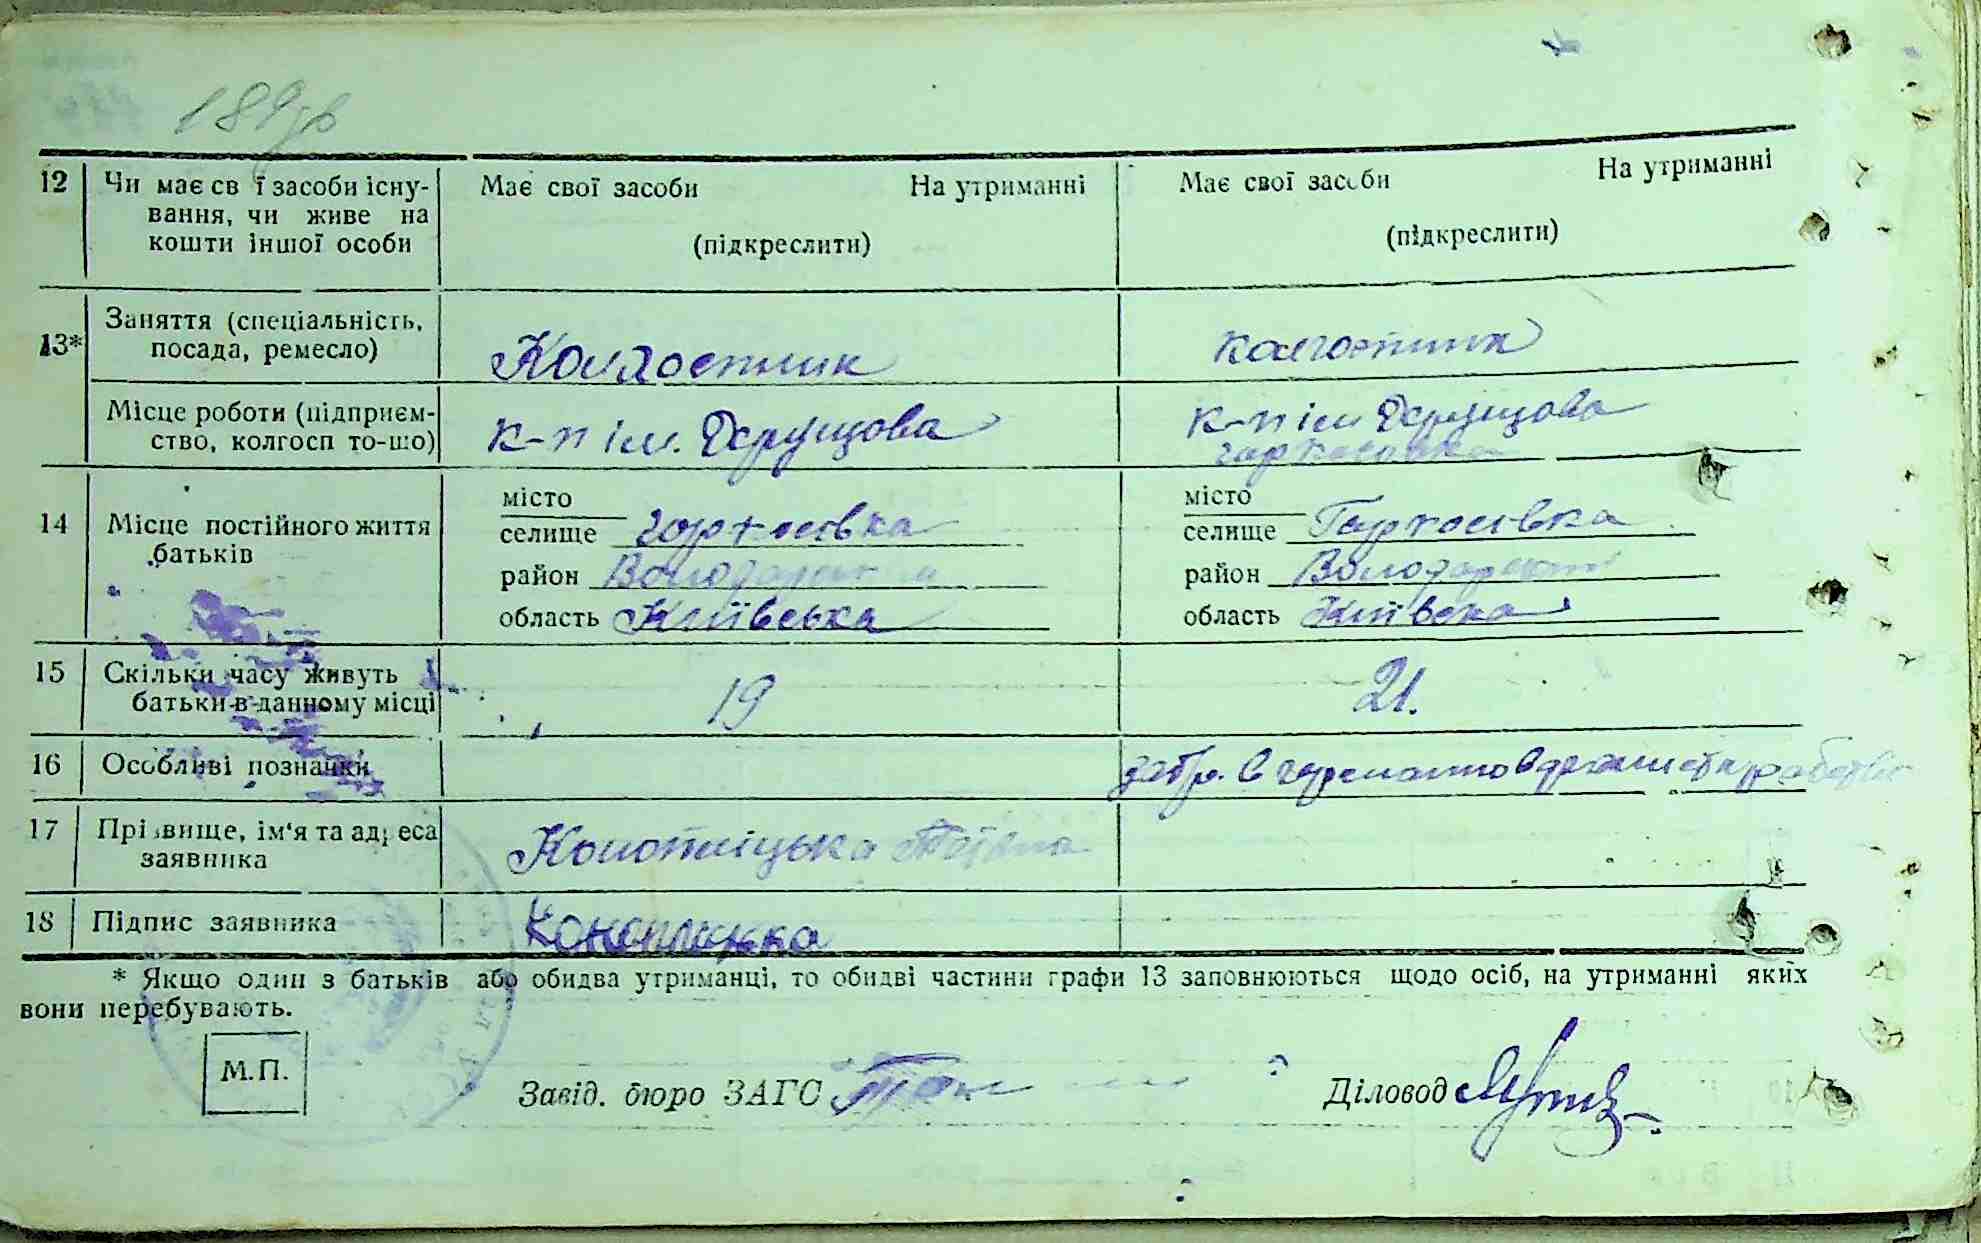 189зв
12 Чи має св ї засоби існу- Має свої засоби На утриманні Має свої засоби На утриманні
вання, чи живе на
кошти іншої особи (підкреслити) (підкреслити)
13* Заняття (спеціальність,
посада, ремесло) Колгоспник колгоспник
Місце роботи (підприєм- к-п ім. Хрущова к-п ім Хрущова
ство, колгосп то-що)
14 Місце постійного життя місто місто
батьків селище Гаркосівка селище Гаркосівка
район Володарський район Володарський
область Київська область Київска
15 Скільки часу живуть 19 21.
батьки в данному місці
16 Особливі позначки
17 Прізвище, ім'я та адреса Конопліцька Тетяна
заявника
18 Підпис заявника Конопліцька
* Якщо один з батьків або обидва утриманці, то обидві частини графи 13 заповнюються щодо осіб, на утриманні яких
вони перебувають.
М.П.
Завід. бюро ЗАГС Діловод